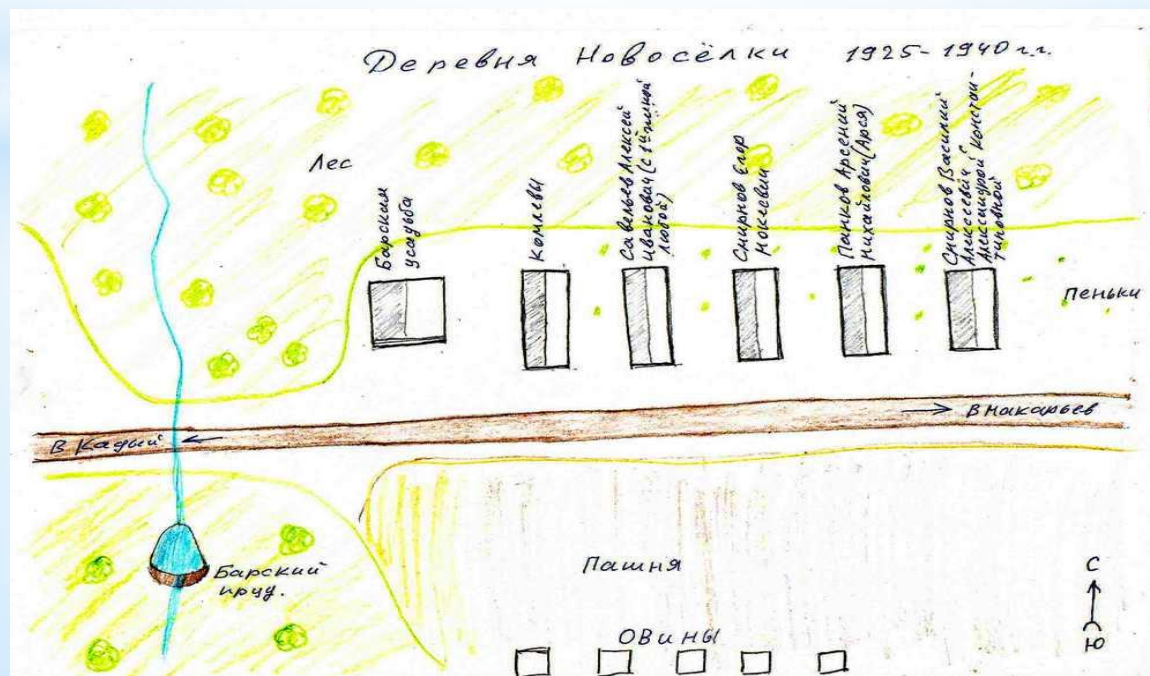 Деревня Новосёлки 1925-1940 г.г.
Лес
Барская
усадьба
Комлевы
Савельев Алексей
Иванович (с 1ой женой
Любой)
Смирнов Егор
Мокеевич
Панков Арсений
Михайлович (Арся)
Смирнов Василий
Алексеевич с
Александрой Констан-
тиновной
пеньки
В Макарьев
В Кадый
Барский
пруд.
Пашня
Овины
С
Ю